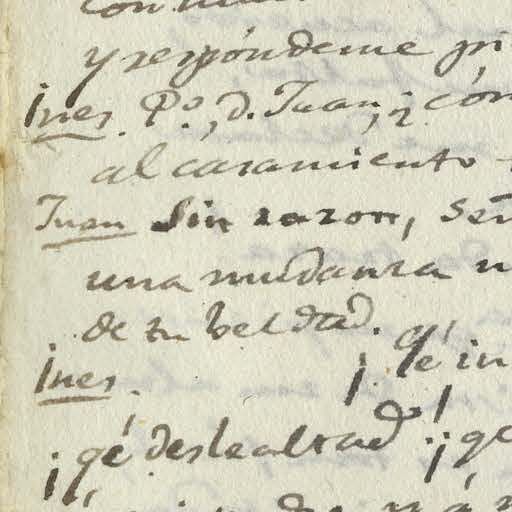 y respóndeme
Ines. P.º, d. Juan, ¿cóm
al casamiento
Juan Sin razon, Señ
una mudanza
de tu beldad.
Ines. ¡qé in
¡qé deslealtad! ¡qé